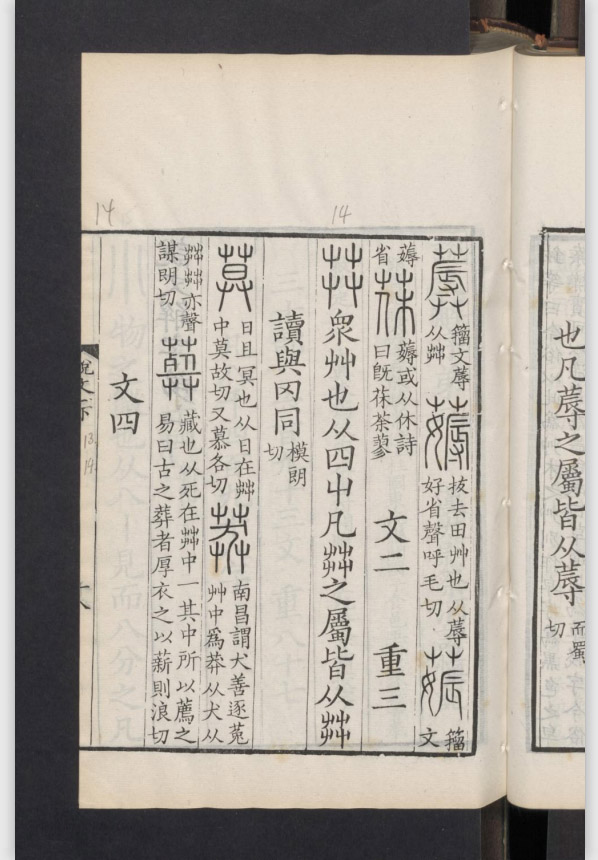 也凡蓐之屬皆从蓐而蜀切
蓐籀文蓐从茻薅拔去田艸也从蓐好省聲呼毛切薅籀文
薅省茠薅或从休詩曰旣茠荼蓼文二重三
茻眾艸也从四屮凡茻之屬皆从茻
讀與冈同模朗切
莫日且冥也从日在茻中莫故切又慕各切莽南昌謂犬善逐菟艸中爲莽从犬从
茻茻亦聲謀朗切葬藏也从死在茻中一其中所以薦之易曰古之葬者厚衣之以薪則浪切
文四
14
14